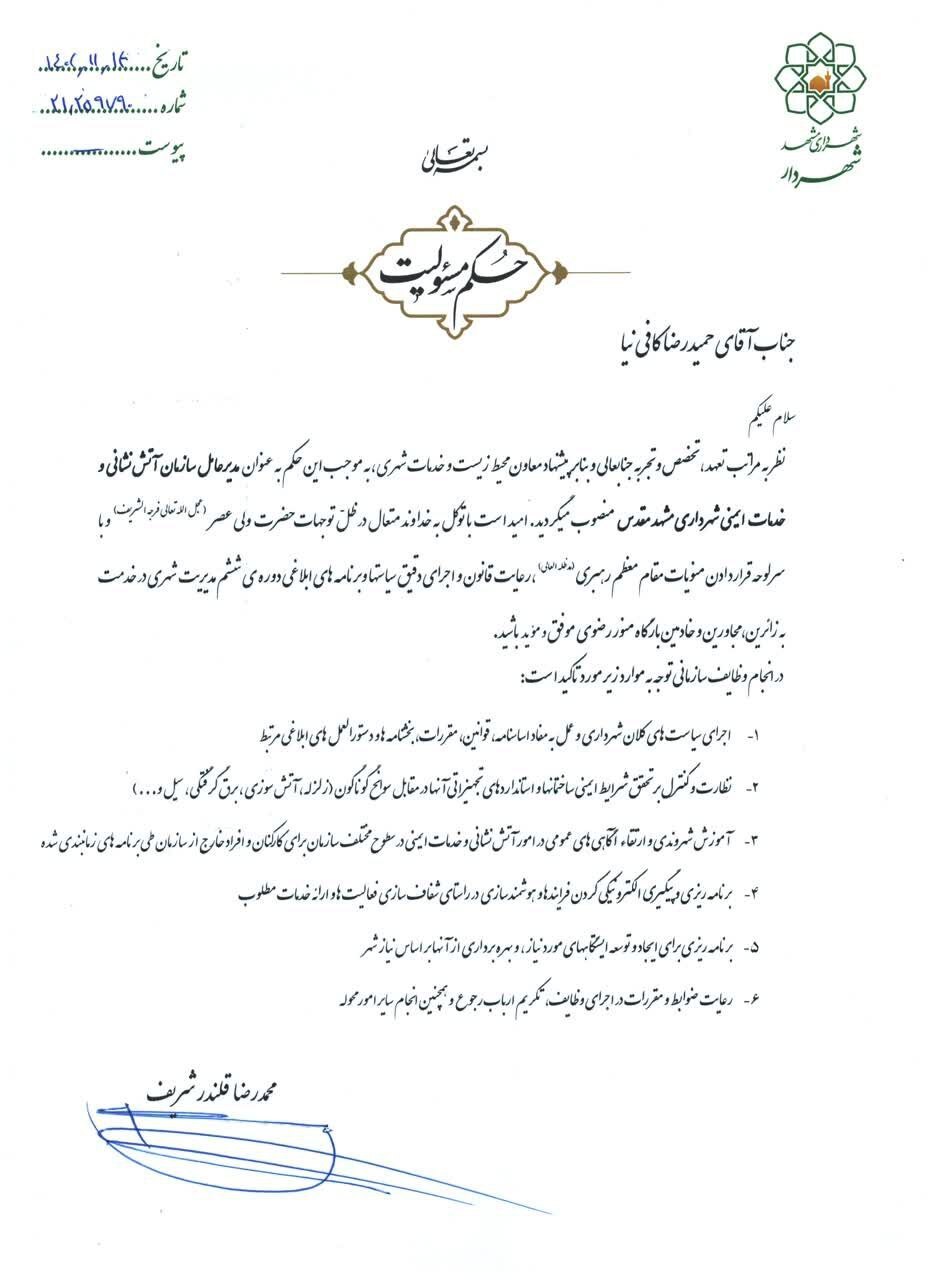 تاریخ ۱۴۰۲,۱۱,۱۴
شماره ۲۱,۲۵۹۷۹۰
پیوست
شهرداری مشهد
شهردار
بسمه تعالی
حکم مسئولیت
جناب آقای حمیدرضا کافی نیا
سلام علیکم
نظر به مراتب تعهد، تخصص و تجربه جنابعالی و بنابر پیشنهاد معاون محیط زیست و خدمات شهری، به موجب این حکم به عنوان مدیرعامل سازمان آتش نشانی و
خدمات ایمنی شهرداری مشهد مقدس منصوب میگردید. امید است با توکل به خداوند متعال در ظلّ توجهات حضرت ولی عصر (عجل الله تعالی فرجه الشریف) و با
سرلوحه قرار دادن منویات مقام معظم رهبری (مدظله العالی)، رعایت قانون و اجرای دقیق سیاستها و برنامه های ابلاغی دوره ی ششم مدیریت شهری در خدمت
به زائرین، مجاورین و خادمین بارگاه منور رضوی موفق و مؤید باشید.
در انجام وظایف سازمانی توجه به موارد زیر مورد تاکید است:
۱- اجرای سیاست های کلان شهرداری و عمل به مفاد اساسنامه، قوانین، مقررات، بخشنامه ها و دستورالعمل های ابلاغی مرتبط
۲- نظارت و کنترل بر تحقق شرایط ایمنی ساختمانها و استانداردهای تجهیزاتی آنها در مقابل سوانح گوناگون (زلزله، آتش سوزی، برق گرفتگی، سیل و...)
۳- آموزش شهروندی و ارتقاء آگاهی های عمومی در امور آتش نشانی و خدمات ایمنی در سطوح مختلف سازمان برای کارکنان و افراد خارج از سازمان طی برنامه های زمانبندی شده
۴- برنامه ریزی و پیگیری الکترونیکی کردن فرایندها و هوشمند سازی در راستای شفاف سازی فعالیت ها و ارائه خدمات مطلوب
۵- برنامه ریزی برای ایجاد و توسعه ایستگاههای مورد نیاز، و بهره برداری از آنها بر اساس نیاز شهر
۶- رعایت ضوابط و مقررات در اجرای وظایف، تکریم ارباب رجوع و همچنین انجام سایر امور محوله
محمدرضا قلندر شریف